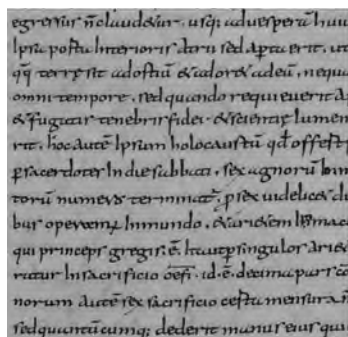 egressus n̄ claudetur. usq; ad uesperū huiu
Ipsa porta Interioris atrii sed aperta erit. ut
terrę sit ad ostiū & adoret & adeū. nequa
omni tempore. sed quando requieuerit a
& fugatis tenebris fidei & scientię lumen
rit. hoc autē Ipsum holocaustū qđ offert
p sacerdotes In die sabbati. sex agnorū
torū numerus terminat. p sex uidelic& di
bus operamur In mundo. & ari&em Inmac
qui princeps gregis. ē. Ita ut p singulos ari&e
ratur In sacrificio oefi. id. ē. decima pars co
norum autē sex sacrificio certa mensura n̄
sed quantūcumq; dederit manus eius qui